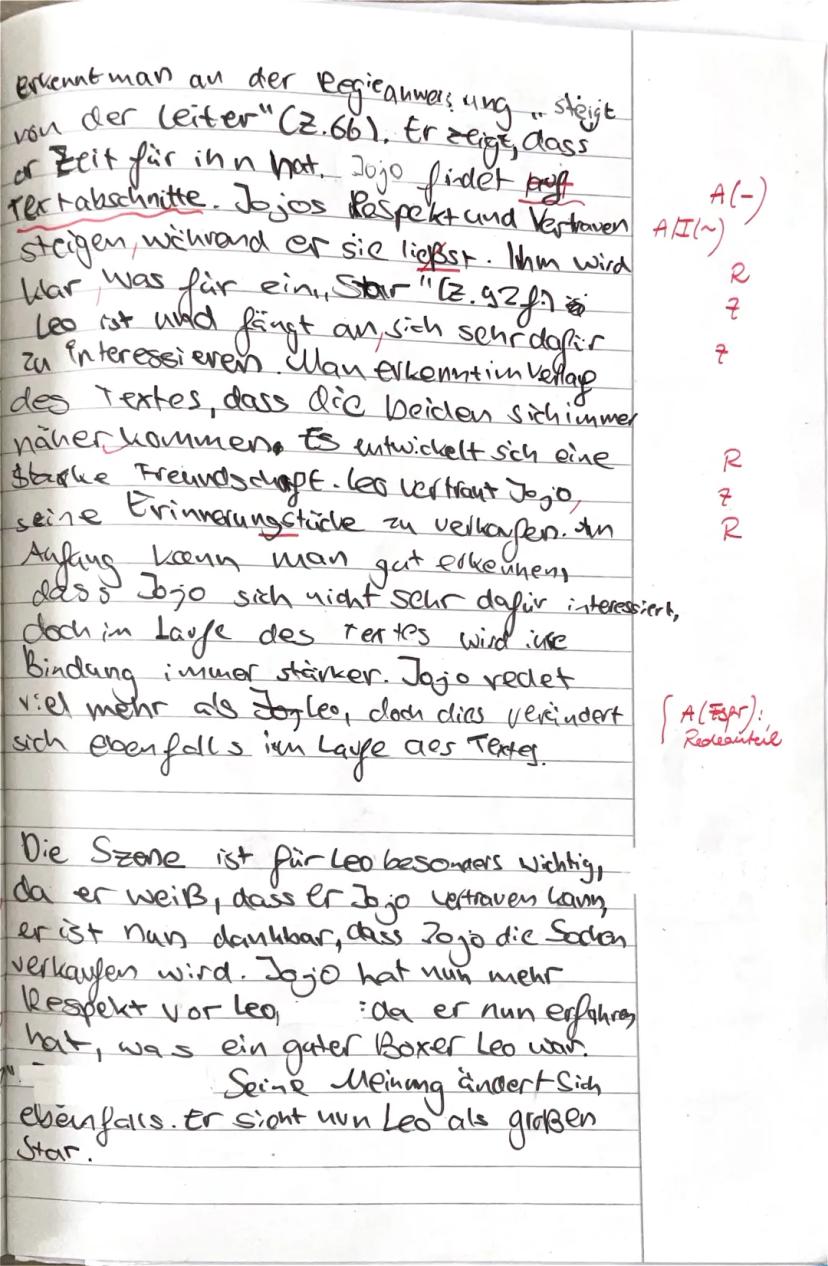 erkennt man an der Regieanweisung „steigt
von der Leiter" (Z.66). Er zeigt, dass
er Zeit für ihn hat. Jojo findet
Textabschnitte. Jojos Respekt und Vertrauen A(-)
steigen, während er sie ließst. Ihm wird A/I(~)
klar, was für ein „Star" (Z.92f.) R
Leo ist und fängt an, sich sehr dafür Z
zu interessieren. Man erkennt im Verlauf Z
des Textes, dass die beiden sich immer
näher kommen. Es entwickelt sich eine
starke Freundschaft. Leo vertraut Jojo, R
seine Erinnerungstücke zu verkaufen. Am Z
Anfang kann man gut erkennen, R
dass Jojo sich nicht sehr dafür interessiert,
doch im Laufe des Textes wird ihre
Bindung immer stärker. Jojo redet
viel mehr als Leo, doch dies verändert A(Espr):
sich ebenfalls im Laufe des Textes. Redeanteil
Die Szene ist für Leo besonders wichtig,
da er weiß, dass er Jojo vertrauen kann,
er ist nun dankbar, dass Jojo die Sachen
verkaufen wird. Jojo hat nun mehr
Respekt vor Leo, da er nun erfahren
hat, was ein guter Boxer Leo war.
Seine Meinung ändert sich
ebenfalls. Er sieht nun Leo als großen
Star.